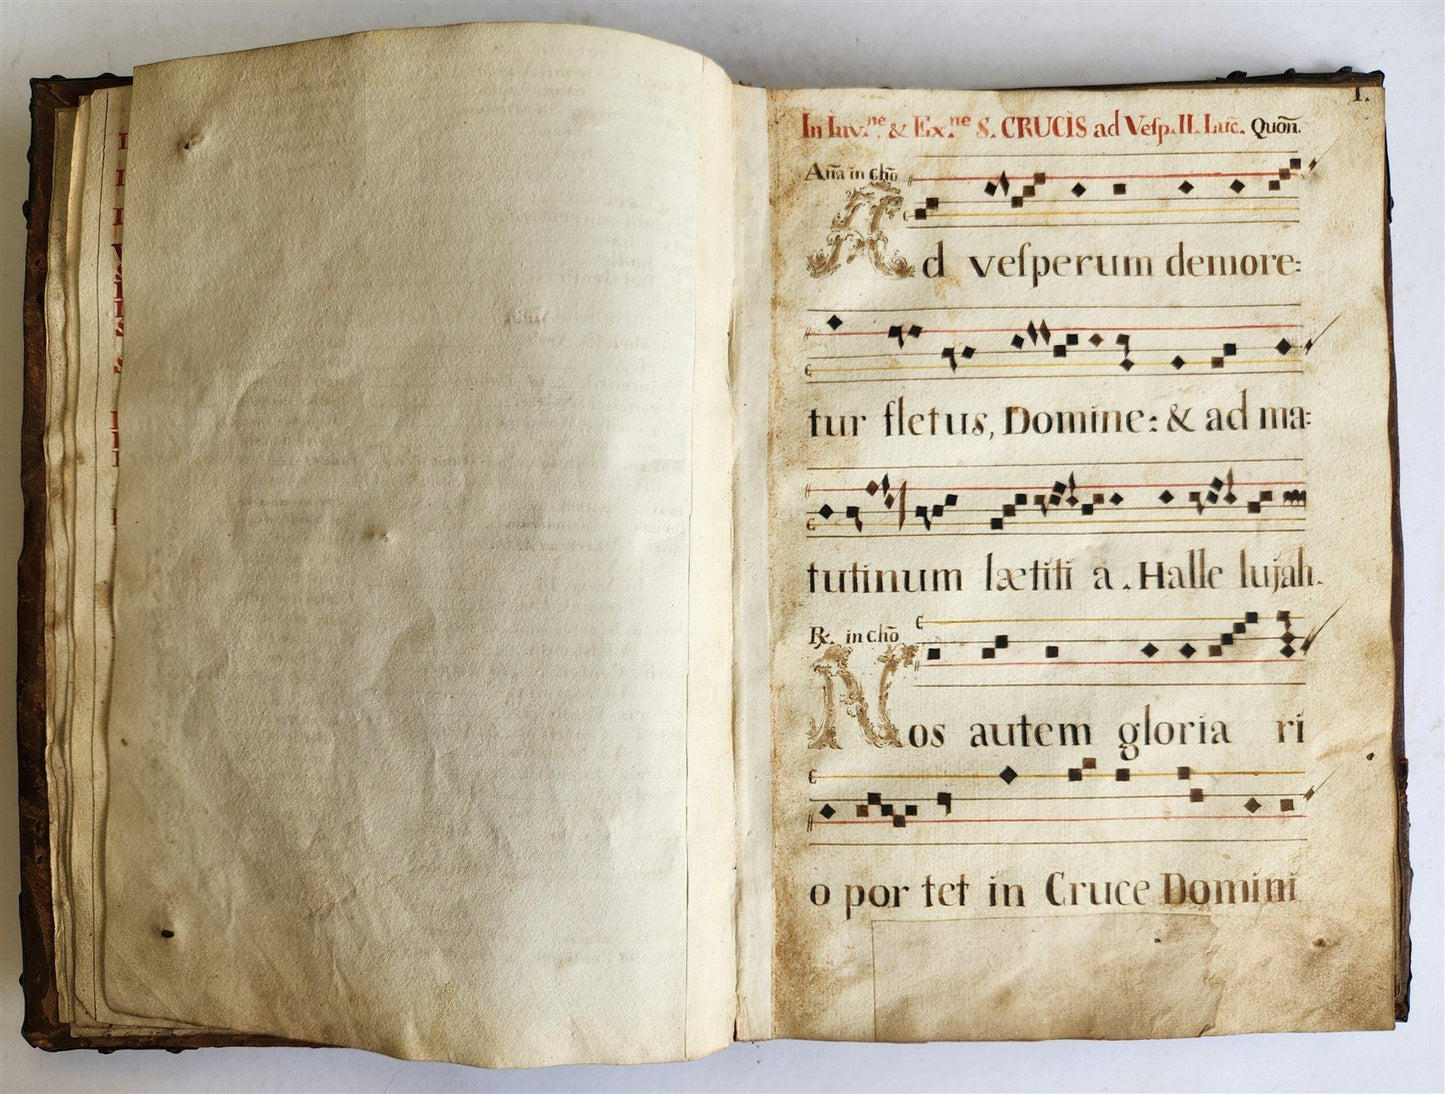 1.
In Inv.ne & Ex.ne S. CRUCIS ad Vesp. II. Luc. Quōn.
Aña in chō
Ad vesperum demore:
tur fletus, Domine: & ad ma:
tutinum lætiti a. Halle lujah.
℟. in chō
Nos autem gloria ri
o por tet in Cruce Domini